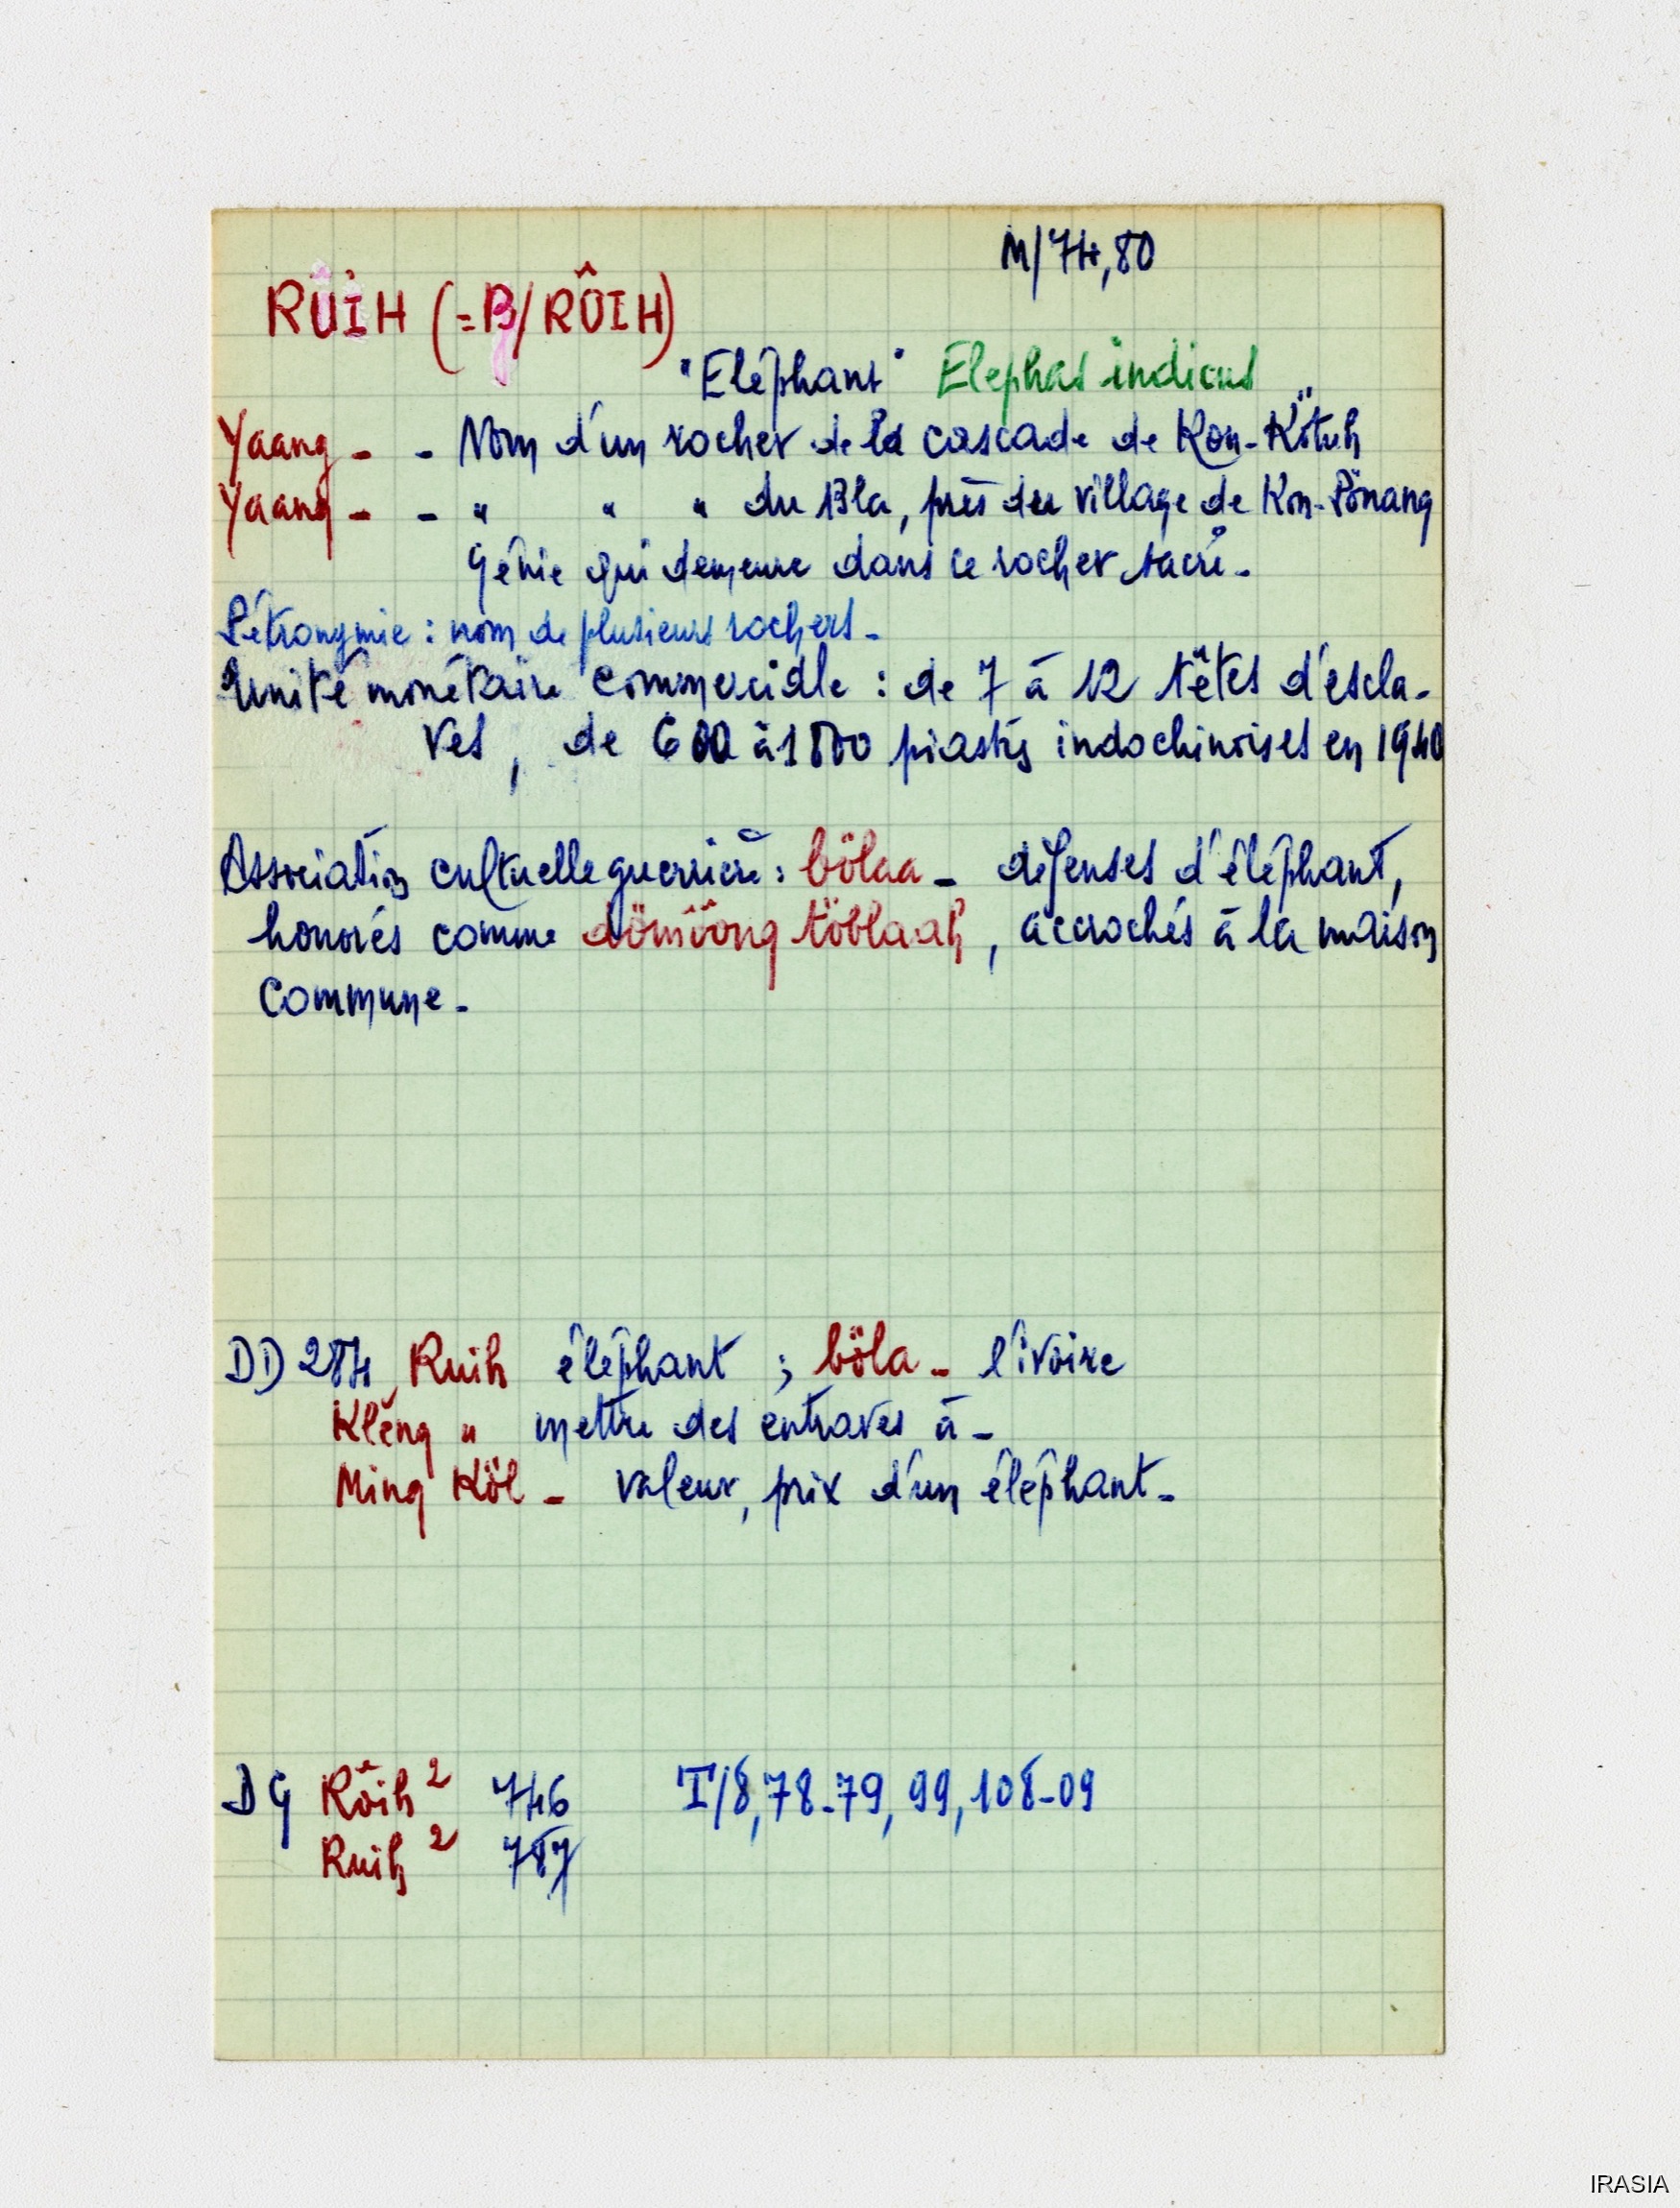 M/74,80
RUIH (=B/RÔIH)
"Eléphant" Elephas indicus
Yaang - - Nom d'un rocher de la cascade de Kon-Kötuh
Yaang - - " " " du Bla, près du village de Kon-Pönang
Génie qui demeure dans ce rocher sacré -
Pétronymie : nom de plusieurs rochers -
Unité monétaire commerciale : de 7 à 12 têtes d'escla-
ves, de 600 à 1800 piastres indochinoises en 1940
Association cultuelle guerrière : bölaa - défenses d'éléphant,
honorés comme dömôông töblaah, accrochés à la maison
commune -
DD 284 Ruih éléphant ; böla - l'ivoire
Klĕng " mettre des entraves à -
Ming Köl - valeur, prix d'un éléphant -
DG Rôih 2 746 I/8, 78-79, 99, 108-09
Ruih 2 787
IRASIA